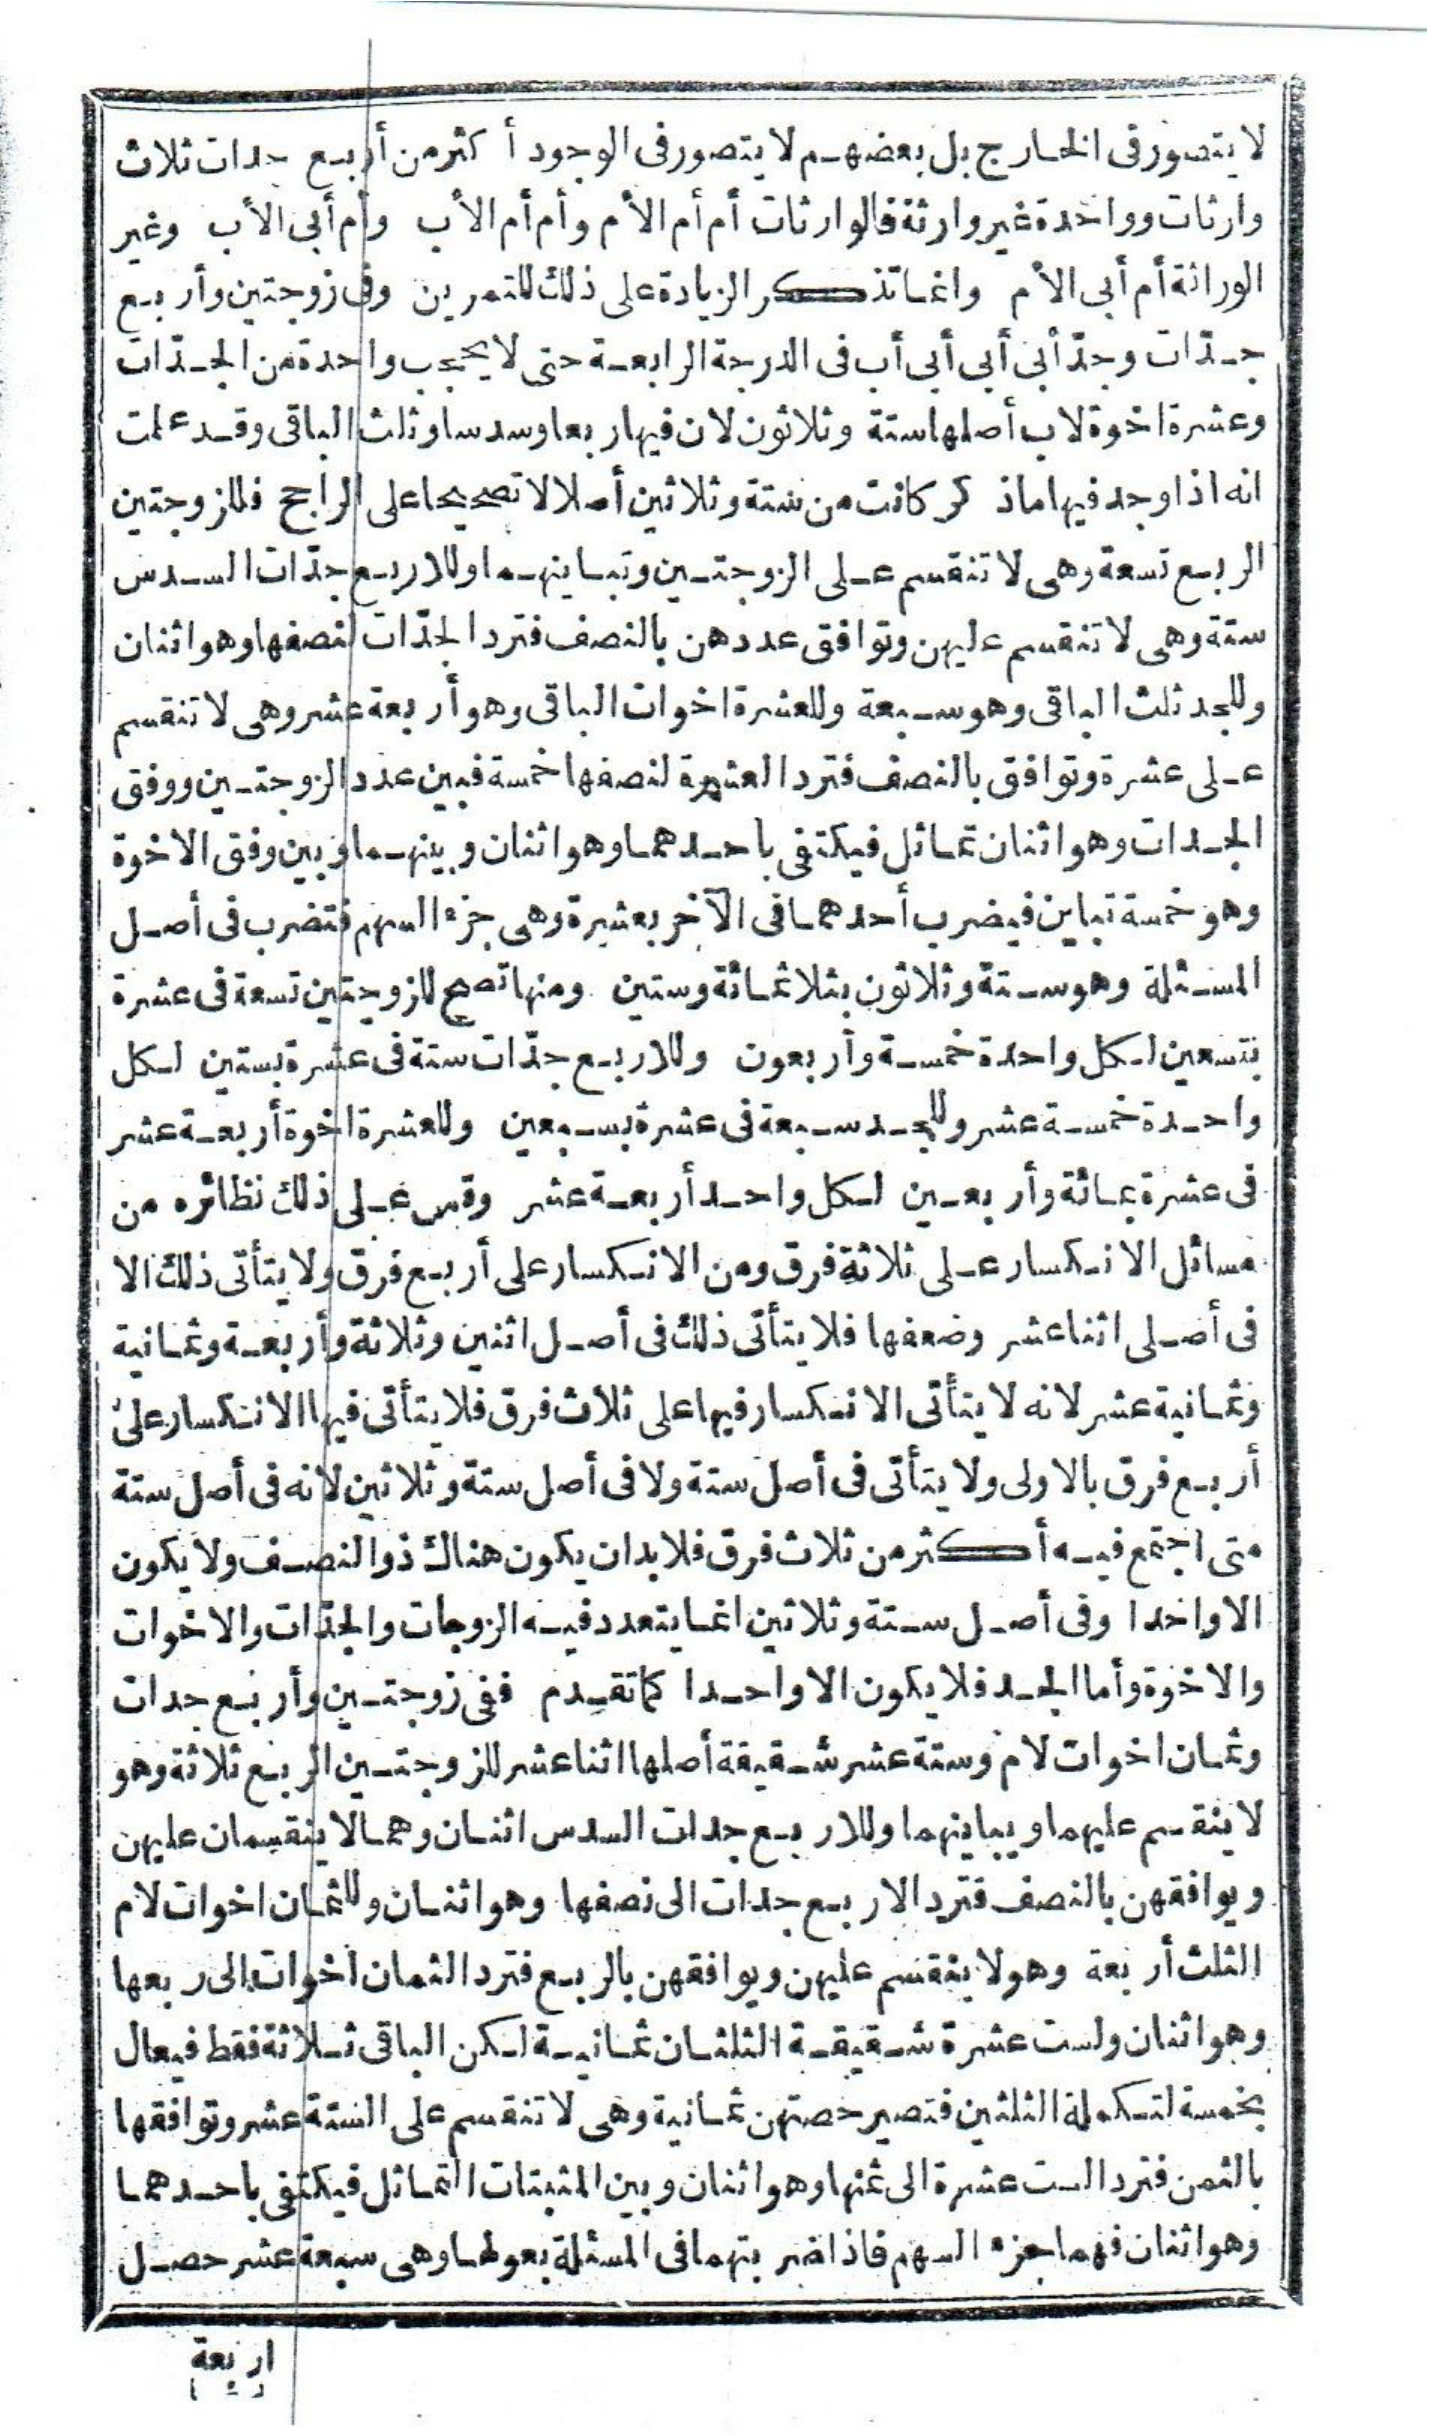 لا يتصور فى الخارج بل بعضهم لا يتصور فى الوجود أكثر من أربع جدات ثلاث
وارثات وواحدة غير وارثة فالوارثات أم أم الأم وأم أم الأب وأم أبى الأب وغير
الوراثة أم أبى الأم وانما تذكر الزيادة على ذلك للتمرين وفى زوجتين وأربع
جدّات وجدّ أبى أبى أبى أب فى الدرجة الرابعة حتى لا يحجب واحدة من الجدّات
وعشرة اخوة لاب أصلها ستة وثلاثون لان فيها ربعا وسدسا وثلث الباقى وقد علمت
انه اذا وجد فيها ماذكر كانت من ستة وثلاثين أصلا لا تصحيحا على الراجح فللزوجتين
الربع تسعة وهى لا تنقسم على الزوجتين وتباينهما وللاربع جدّات السدس
ستة وهى لا تنقسم عليهن وتوافق عددهن بالنصف فترد الجدّات لنصفها وهو اثنان
وللجد ثلث الباقى وهو سبعة وللعشرة اخوات الباقى وهو أربعة عشر وهى لا تنقسم
على عشرة وتوافق بالنصف فترد العشرة لنصفها خمسة فبين عدد الزوجتين ووفق
الجدات وهو اثنان تماثل فيكتفى باحدهما وهو اثنان وبينهما وبين وفق الاخوة
وهو خمسة تباين فيضرب أحدهما فى الآخر بعشرة وهى جزء السهم فتضرب فى أصل
المسئلة وهو ستة وثلاثون بثلاثمائة وستين ومنها تصح للزوجتين تسعة فى عشرة
بتسعين لكل واحدة خمسة وأربعون وللاربع جدّات ستة فى عشرة بستين لكل
واحدة خمسة عشر وللجد سبعة فى عشرة بسبعين وللعشرة اخوة أربعة عشر
فى عشرة بمائة وأربعين لكل واحد أربعة عشر وقس على ذلك نظائره من
مسائل الانكسار على ثلاثة فرق ومن الانكسار على أربع فرق ولا يتأتى ذلك الا
فى أصلى اثنا عشر وضعفها فلا يتأتى ذلك فى أصل اثنين وثلاثة وأربعة وثمانية
وثمانية عشر لانه لا يتأتى الانكسار فيها على ثلاث فرق فلا يتأتى فيها الانكسار على
أربع فرق بالاولى ولا يتأتى فى أصل ستة ولا فى أصل ستة وثلاثين لانه فى أصل ستة
متى اجتمع فيه أكثر من ثلاث فرق فلا بد ان يكون هناك ذو النصف ولا يكون
الا واحدا وفى أصل ستة وثلاثين انما يتعدد فيه الزوجات والجدّات والاخوات
والاخوة وأما الجد فلا يكون الا واحدا كما تقدم ففى زوجتين وأربع جدات
وثمان اخوات لام وستة عشر شقيقة أصلها اثنا عشر للزوجتين الربع ثلاثة وهو
لا ينقسم عليهما ويباينهما وللاربع جدات السدس اثنان وهما لا ينقسمان عليهن
ويوافقهن بالنصف فترد الاربع جدات الى نصفها وهو اثنان وللثمان اخوات لام
الثلث أربعة وهو لا ينقسم عليهن ويوافقهن بالربع فترد الثمان اخوات الى ربعها
وهو اثنان ولست عشرة شقيقة الثلثان ثمانية لكن الباقى ثلاثة فقط فيعال
بخمسة لتكملة الثلثين فتصير حصتهن ثمانية وهى لا تنقسم على الستة عشر وتوافقها
بالثمن فترد الست عشرة الى ثمنها وهو اثنان وبين المثبتات التماثل فيكتفى باحدهما
وهو اثنان فهما جزء السهم فاذا ضربتهما فى المسئلة بعولها وهى سبعة عشر حصل
اربعة